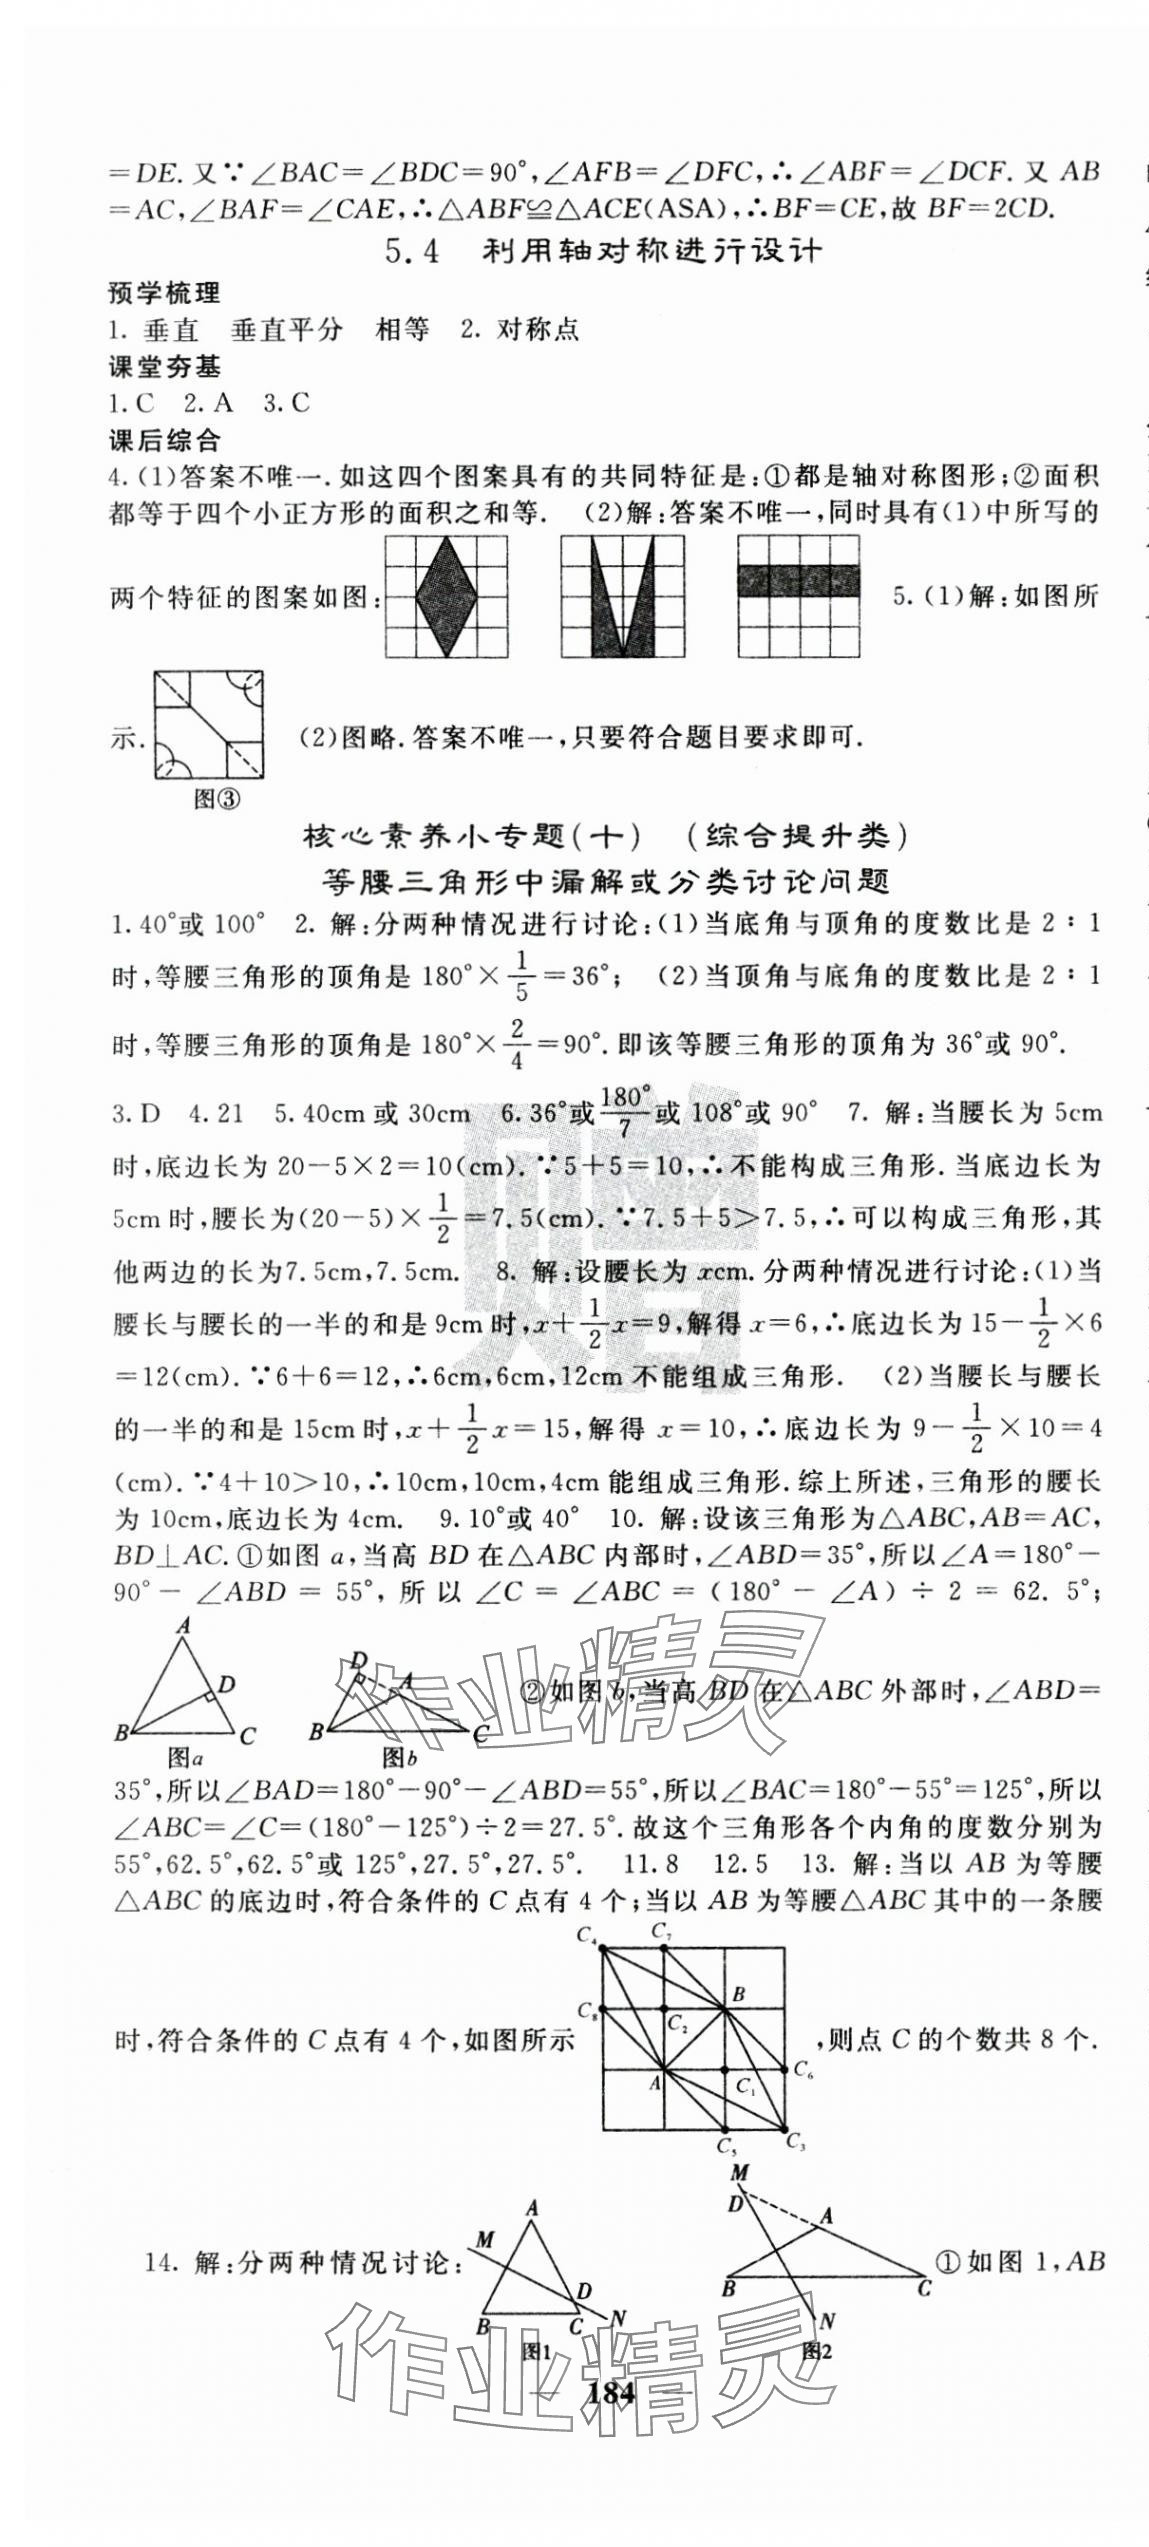 =DE.又∵∠BAC=∠BDC=90°,∠AFB=∠DFC,∴∠ABF=∠DCF.又 AB
=AC,∠BAF=∠CAE,∴△ABF≌△ACE(ASA),∴BF=CE,故 BF=2CD.
5.4 利用轴对称进行设计
预学梳理
1. 垂直 垂直平分 相等 2. 对称点
课堂夯基
1.C 2.A 3.C
课后综合
4.(1)答案不唯一.如这四个图案具有的共同特征是:①都是轴对称图形;②面积
都等于四个小正方形的面积之和等. (2)解:答案不唯一,同时具有(1)中所写的
两个特征的图案如图: 5.(1)解:如图所
示. (2)图略.答案不唯一,只要符合题目要求即可.
图③
核心素养小专题(十) (综合提升类)
等腰三角形中漏解或分类讨论问题
1.40°或 100° 2. 解:分两种情况进行讨论:(1)当底角与顶角的度数比是 2∶1
时,等腰三角形的顶角是 180°×1/5=36°; (2)当顶角与底角的度数比是 2∶1
时,等腰三角形的顶角是 180°×2/4=90°.即该等腰三角形的顶角为 36°或 90°.
3.D 4.21 5.40cm 或 30cm 6.36°或180°/7或 108°或 90° 7. 解:当腰长为 5cm
时,底边长为 20-5×2=10(cm).∵5+5=10,∴不能构成三角形.当底边长为
5cm 时,腰长为(20-5)×1/2=7.5(cm).∵7.5+5>7.5,∴可以构成三角形,其
他两边的长为7.5cm,7.5cm. 8. 解:设腰长为 xcm.分两种情况进行讨论:(1)当
腰长与腰长的一半的和是 9cm 时,x+1/2x=9,解得 x=6,∴底边长为 15-1/2×6
=12(cm).∵6+6=12,∴6cm,6cm,12cm 不能组成三角形. (2)当腰长与腰长
的一半的和是 15cm 时,x+1/2x=15,解得 x=10,∴底边长为 9-1/2×10=4
(cm).∵4+10>10,∴10cm,10cm,4cm 能组成三角形.综上所述,三角形的腰长
为 10cm,底边长为 4cm. 9.10°或 40° 10. 解:设该三角形为△ABC,AB=AC,
BD⊥AC.①如图 a,当高 BD 在△ABC 内部时,∠ABD=35°,所以∠A=180°-
90°-∠ABD=55°,所以∠C=∠ABC=(180°-∠A)÷2=62.5°;
A
D
B
C
图a
D
A
B
C
图b
②如图 b,当高 BD 在△ABC 外部时,∠ABD=
35°,所以∠BAD=180°-90°-∠ABD=55°,所以∠BAC=180°-55°=125°,所以
∠ABC=∠C=(180°-125°)÷2=27.5°.故这个三角形各个内角的度数分别为
55°,62.5°,62.5°或 125°,27.5°,27.5°. 11.8 12.5 13. 解:当以 AB 为等腰
△ABC 的底边时,符合条件的 C 点有 4 个;当以 AB 为等腰△ABC 其中的一条腰
C₄
C₇
B
C₈
C₂
时,符合条件的 C 点有 4 个,如图所示 ,则点 C 的个数共 8 个.
A
C₁
C₆
C₅
C₃
14. 解:分两种情况讨论: ①如图 1,AB
A
M
D
B
C
N
图1
M
D
A
B
C
N
图2
184
赠
作业精灵
作业精灵